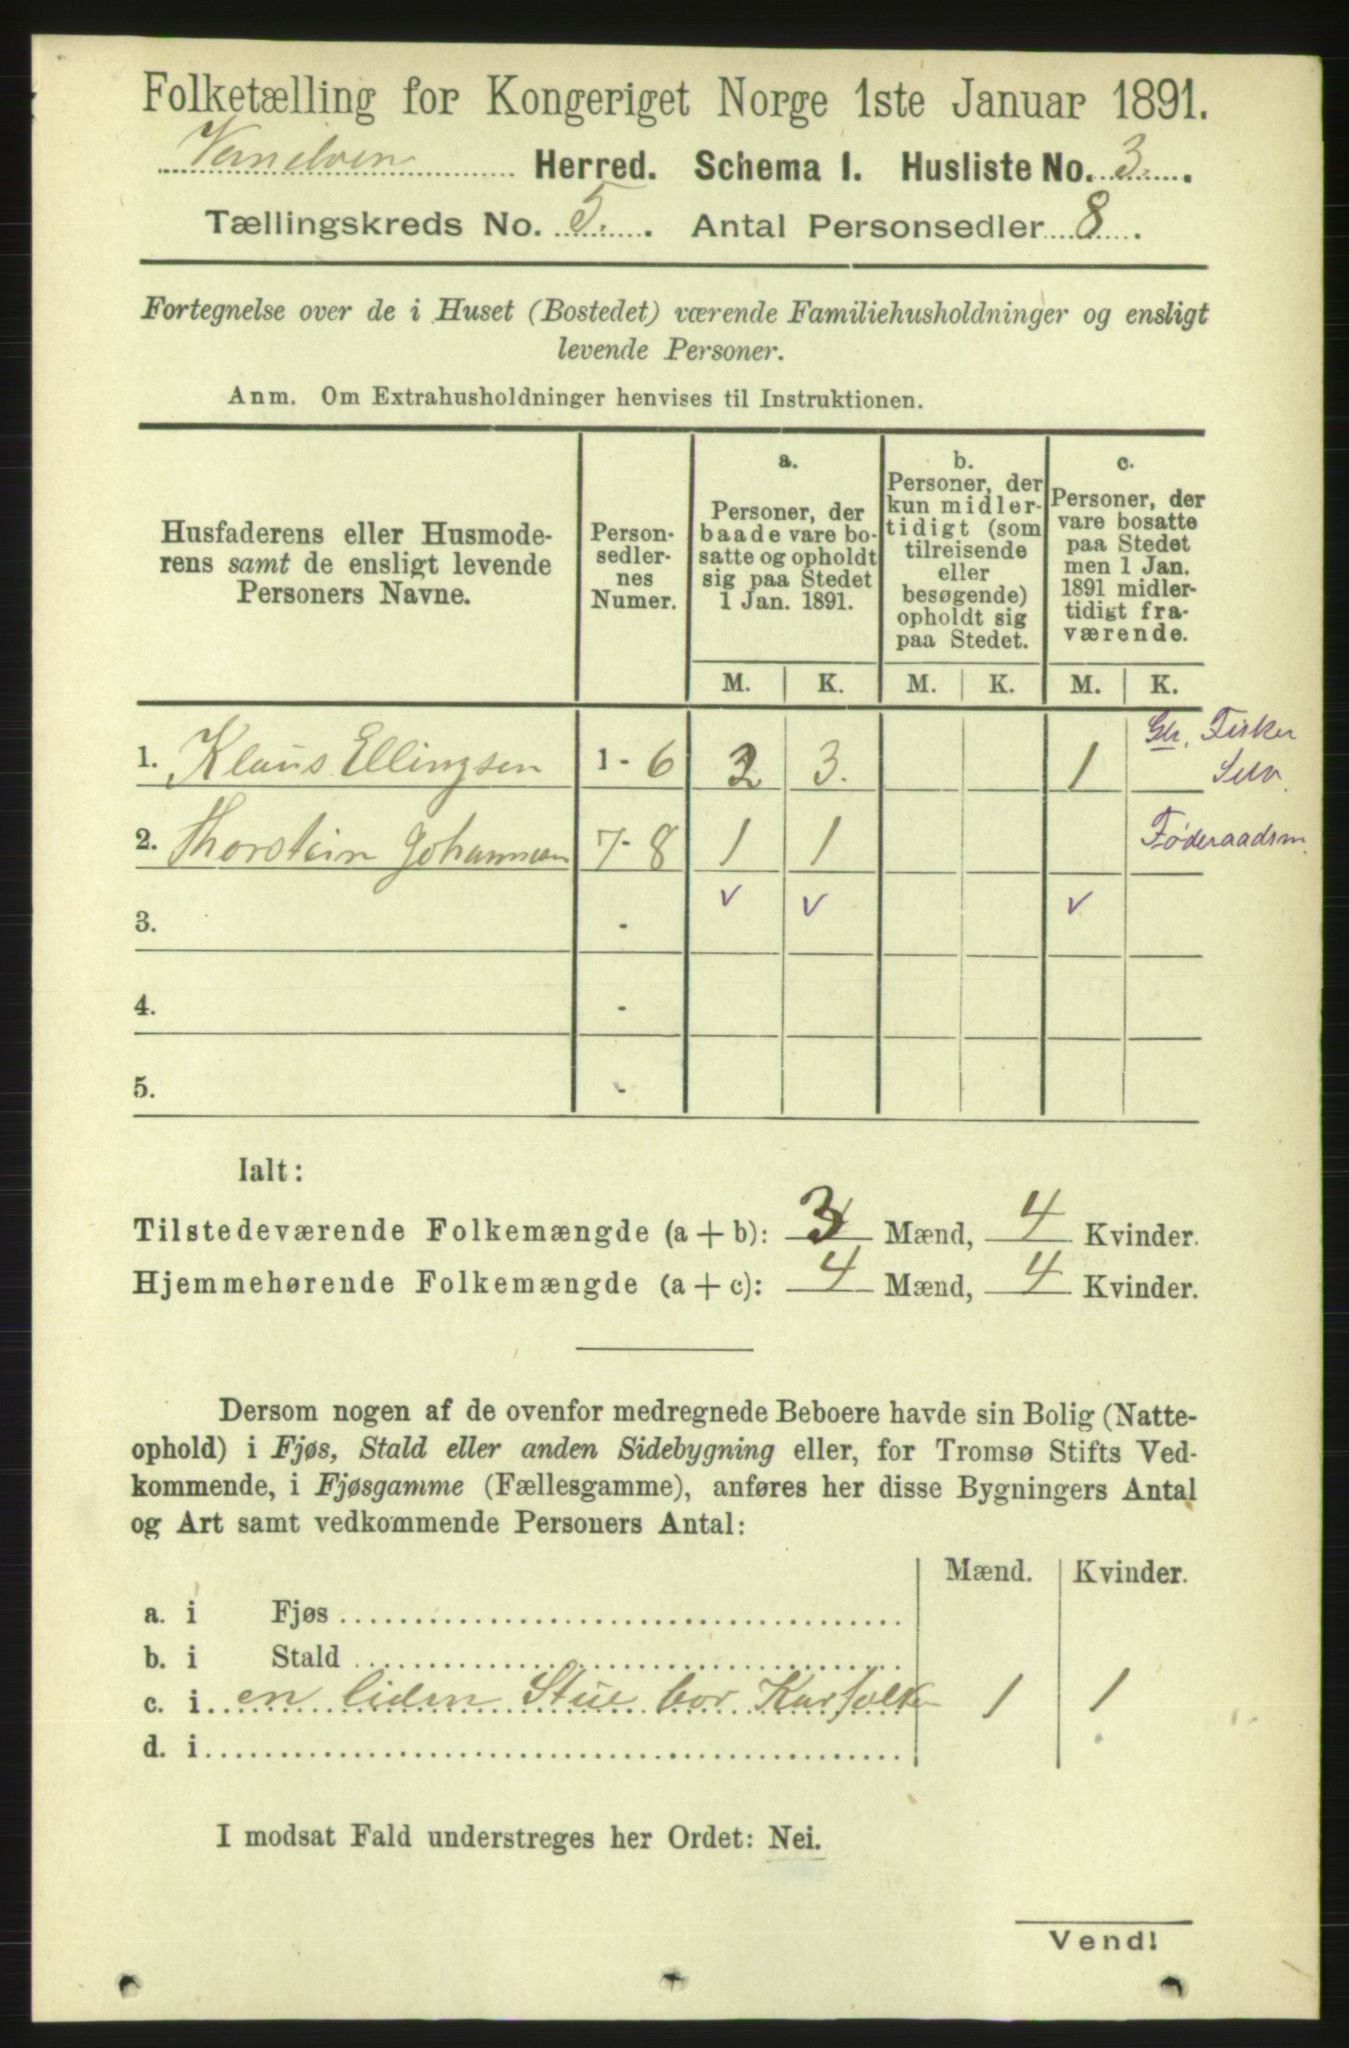 Folketælling for Kongeriget Norge 1ste Januar 1891.
Vanelven Herred. Schema I. Husliste No. 3.
Tællingskreds No. 5. Antal Personsedler 8.
Fortegnelse over de i Huset (Bostedet) værende Familiehusholdninger og ensligt
levende Personer.
Anm. Om Extrahusholdninger henvises til Instruktionen.
Husfaderens eller Husmode-
rens samt de ensligt levende
Personers Navne.
Person-
sedler-
nes
Numer.
a.
Personer, der
baade vare bo-
satte og opholdt
sig paa Stedet
1 Jan. 1891.
b.
Personer, der
kun midler-
tidigt (som
tilreisende
eller
besøgende)
opholdt sig
paa Stedet.
c.
Personer, der
vare bosatte
paa Stedet
men 1 Jan.
1891 midler-
tidigt fra-
værende.
M. K. M. K. M. K.
1. Klaus Ellingsen 1 - 6 2 3. 1 Gbr. Fisker
Selv.
2. Thorstein Johannesen 7 - 8 1 1 Føderaadsm.
v v v
3. -
4. -
5. -
Ialt:
Tilstedeværende Folkemængde (a + b): 3 Mænd, 4 Kvinder.
Hjemmehørende Folkemængde (a + c): 4 Mænd, 4 Kvinder.
Dersom nogen af de ovenfor medregnede Beboere havde sin Bolig (Natte-
ophold) i Fjøs, Stald eller anden Sidebygning eller, for Tromsø Stifts Ved-
kommende, i Fjøsgamme (Fællesgamme), anføres her disse Bygningers Antal
og Art samt vedkommende Personers Antal:
Mænd. Kvinder.
a. i Fjøs
b. i Stald
c. i en liden Stue bor Karfolk 1 1
d. i
I modsat Fald understreges her Ordet: Nei.
Vend!